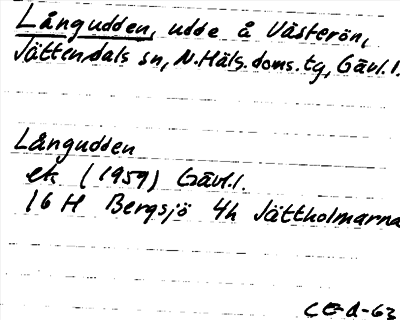 Långudden, udde å Västerön,
Jättendals sn, N.Häls.doms.tg, Gävl.l.
Långudden
ek (1959) Gävl.l.
16 H Bergsjö 4h Jättholmarna